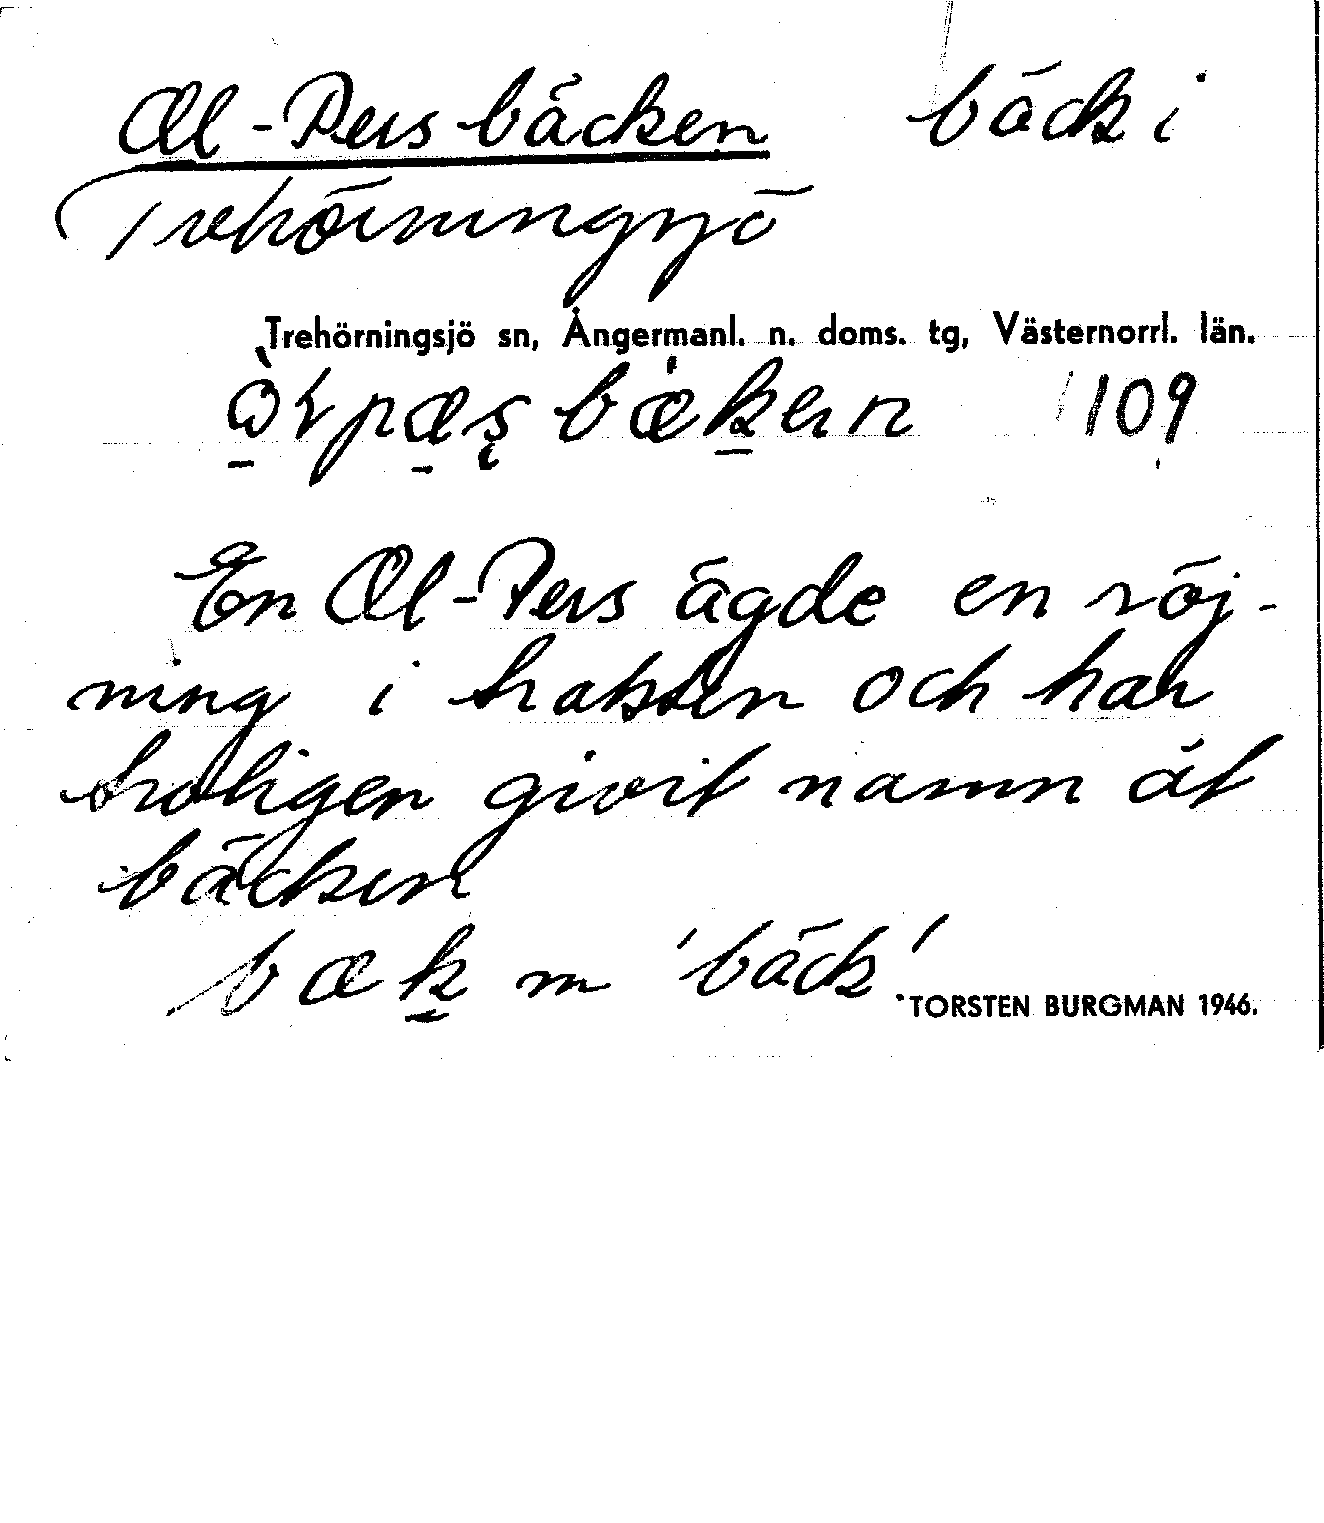 Ol-Persbäcken bäck i
Trehörningsjö
Trehörningsjö sn, Ångermanl. n. doms. tg, Västernorrl. län.
109
En Ol-Pers ägde en röj-
ning i trakten och har
troligen givit namn åt
bäcken
bæk m 'bäck'
TORSTEN BURGMAN 1946.